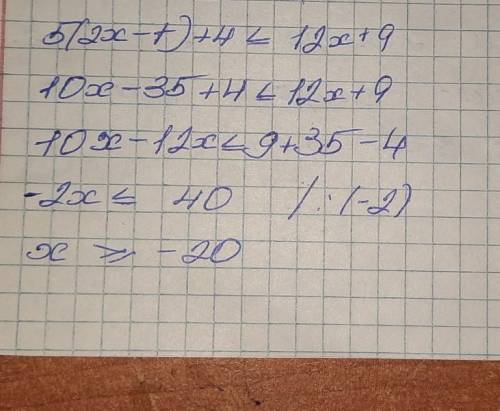 5(2x-7)+4 ≤ 12x+9
10x-35+4 ≤ 12x+9
10x-12x ≤ 9+35-4
-2x ≤ 40 /:(-2)
x ≥ -20